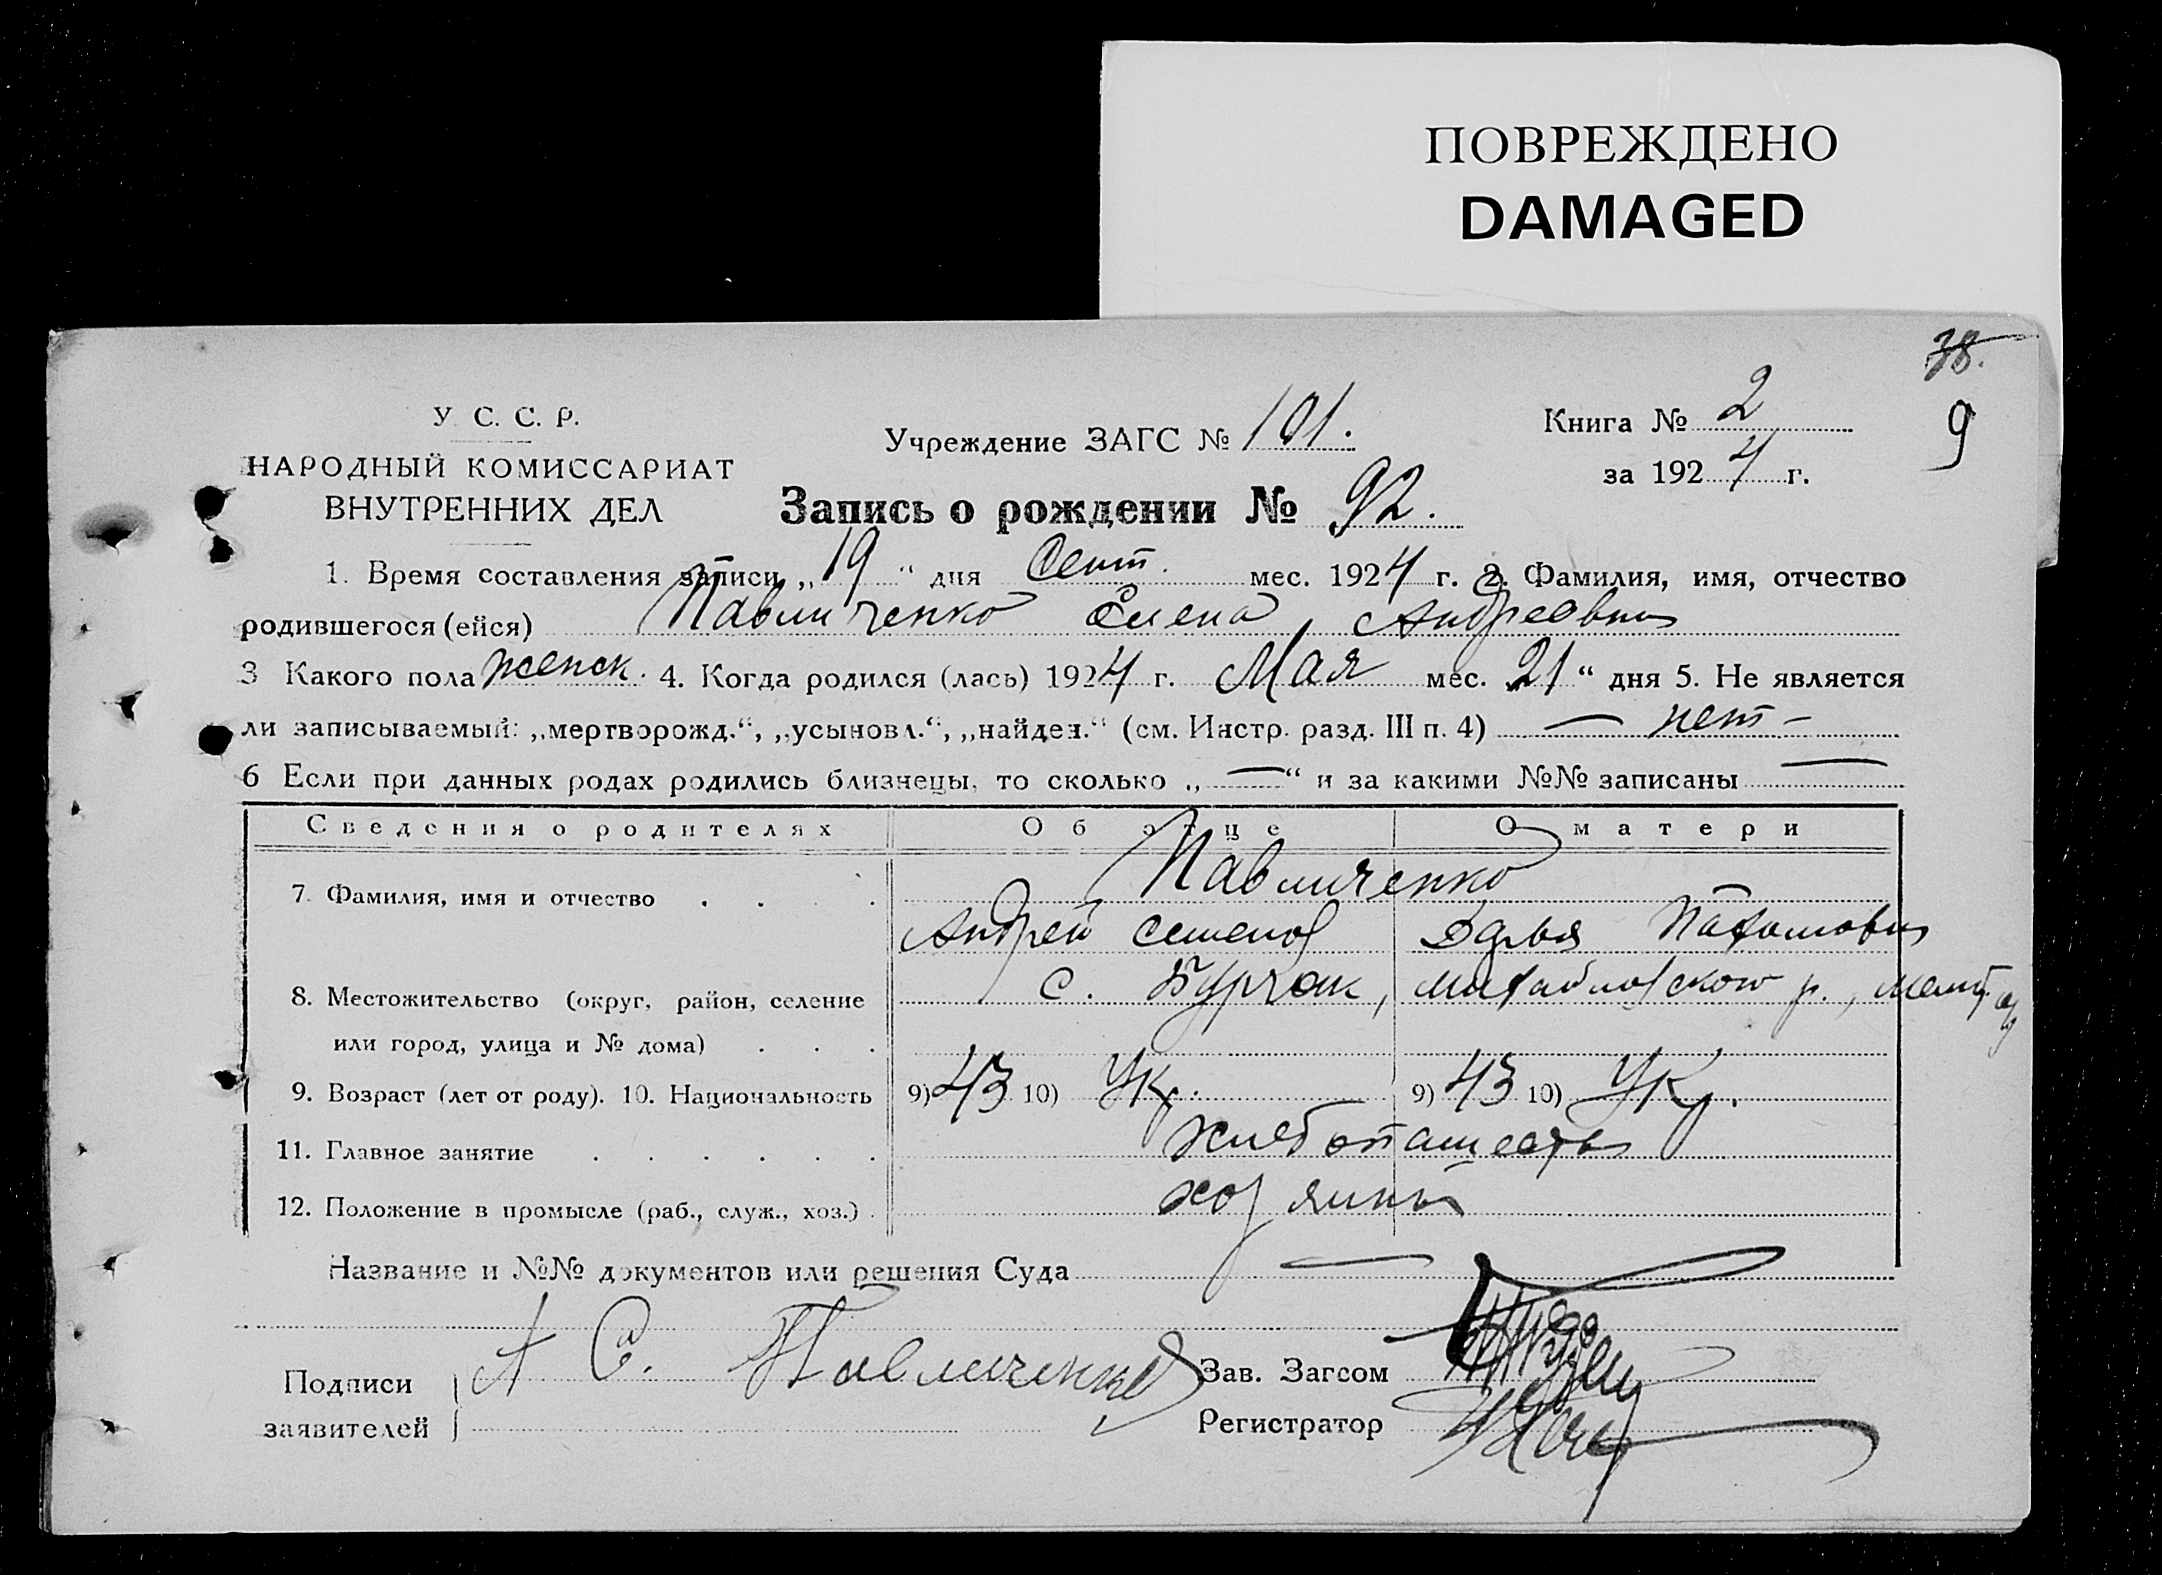 ПОВРЕЖДЕНО
DAMAGED
38.
У. С. С. Р.
НАРОДНЫЙ КОМИССАРИАТ
ВНУТРЕННИХ ДЕЛ
Учреждение ЗАГС № 101.
Книга № 2
за 1924 г.
9
Запись о рождении № 92.
1. Время составления записи „19“ дня Сент. мес. 1924 г. 2. Фамилия, имя, отчество
родившегося (ейся) Павличенко Елена Андреевна
3 Какого пола женск. 4. Когда родился (лась) 1924 г. Мая мес. 21“ дня 5. Не является
ли записываемый: „мертворожд.“, „усыновл.“, „найден.“ (см. Инстр. разд. III п. 4) — нет —
6 Если при данных родах родились близнецы, то сколько „—“ и за какими №№ записаны —
Сведения о родителях Об отце О матери
7. Фамилия, имя и отчество Павличенко
Андрей Семенов Дарья Пахомовна
8. Местожительство (округ, район, селение с. Бурчак, Михайловского р., Мелит.
или город, улица и № дома)
9. Возраст (лет от роду). 10. Национальность 9) 43 10) Укр. 9) 43 10) Укр.
11. Главное занятие хлебопашество
12. Положение в промысле (раб., служ., хоз.) хозяины
Название и №№ документов или решения Суда —
Подписи А С. Павличенко Зав. Загсом
заявителей Регистратор